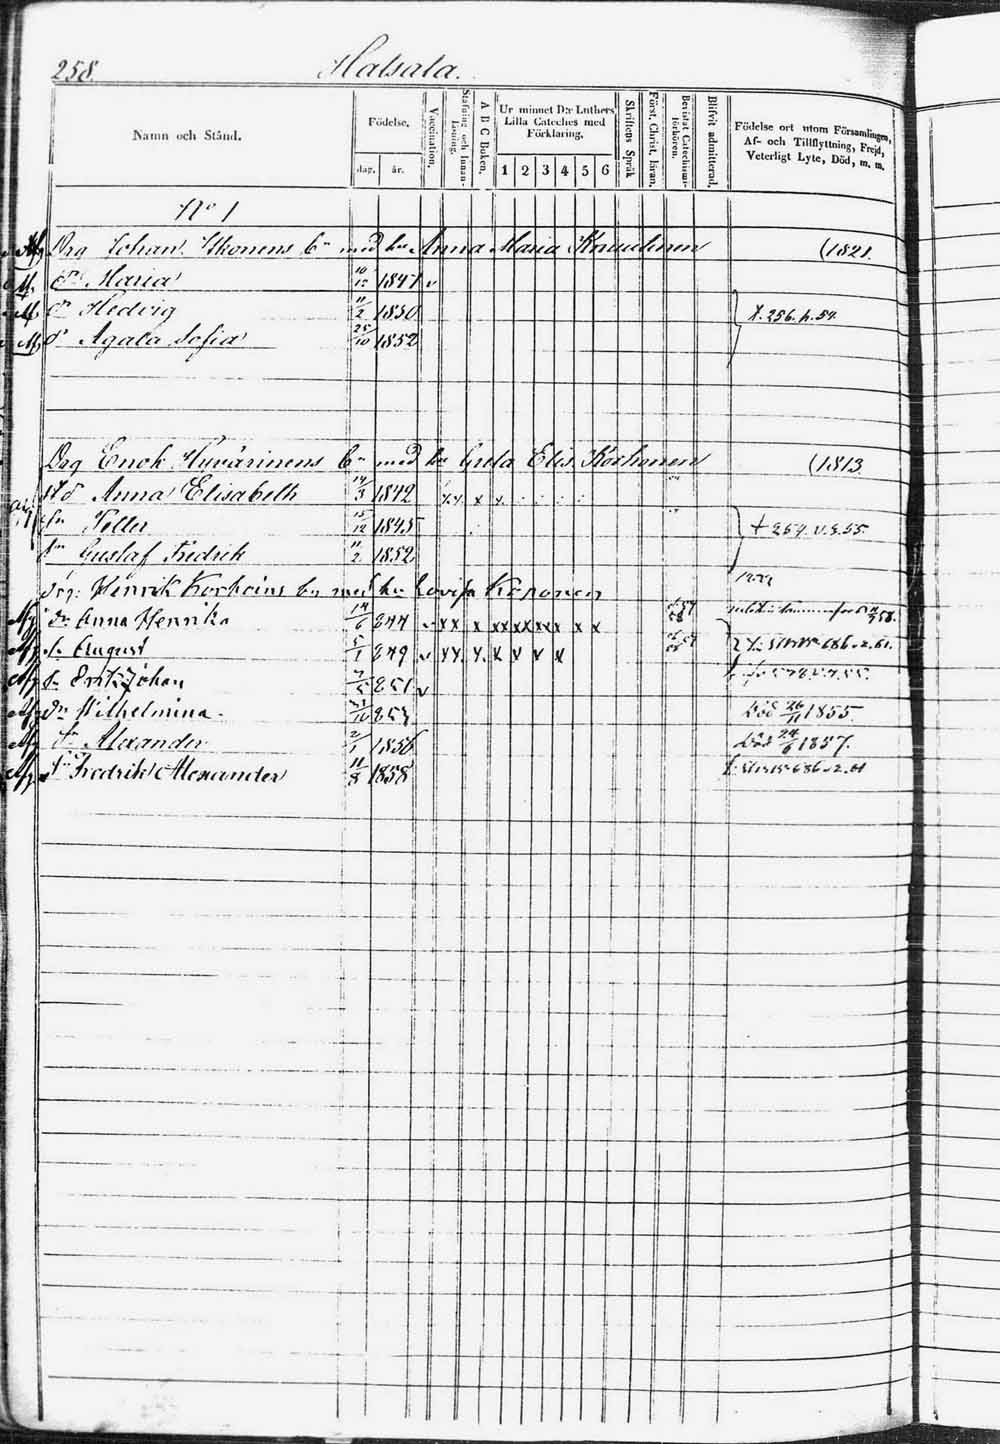 258. Halsala.
Namn och Stånd.
Födelse.
dag. år.
Vaccination.
Stafning och Innan-Läsning.
A B C Boken.
Ur minnet D:r Luthers Lilla Cateches med Förklaring.
1 2 3 4 5 6
Skriftens Språk
Först. Christ. läran.
Bevistat Catechismi-förhören.
Blifvit admitterad.
Födelse ort utom Församlingen, Af- och Tillflyttning, Frejd, Veterligt Lyte, Död, m. m.
No 1
Drg Johan Ikonens bn med hu Anna Maria (1821.
dr Maria 10/12 1847
dr Hedvig 11/2 1850 256. p. 54.
dr Agata Sofia 25/10 1852
Drg Enok Huvärinens bn med hu Greta Elis. Korhonen (1813.
Anna Elisabeth 14/3 1842 x x x x
sn Petter 15/12 1845 254. 55.
sn Gustaf Fredrik 11/2 1852
Drg: Henrik Korhoins bn med hu Lovisa Koponen
dr Anna Henrika 14/6 844 x x x x x x x x x x x 58.
sn August 5/1 849 v x x x x v x x 686 61.
sn Erik Johan 851 v 55.
dr Wilhelmina Död 26/11 1855.
sn Alexander 2/1 1856 Död 24/6 1857.
sn Fredrik Alexander 11/8 1858 686 61